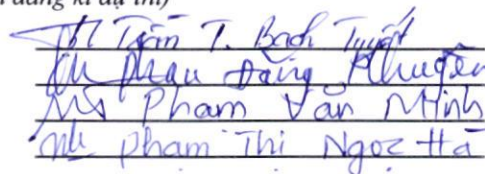 đăng kí dự thi)
Th Trần T. Bạch Tuyết
Th Phau Đăng Khuyên
Ms Phạm Văn Minh
Phạm Thị Ngọc Hà